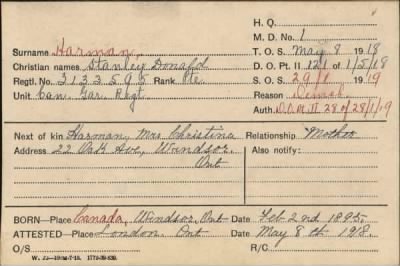 H. Q.
M. D. No. 1
Surname Harman,
T. O. S. May 8 1918
Christian names Stanley Donald
D.O. Pt. II 121 of 1/5/18
Regtl. No. 3133595 Rank Pte.
S. O. S. 29/1 1919
Unit Can. Gar. Regt
Reason Demob.
Auth. D.O. II 28 of 28/1/19
Next of kin Harman, Mrs Christina Relationship Mother
Address 22 Oak Ave, Windsor. Also notify:
Ont
BORN—Place Canada, Windsor, Ont Date Feb 2nd 1895.
ATTESTED—Place London. Ont Date May 8th 1918.
O/S R/C